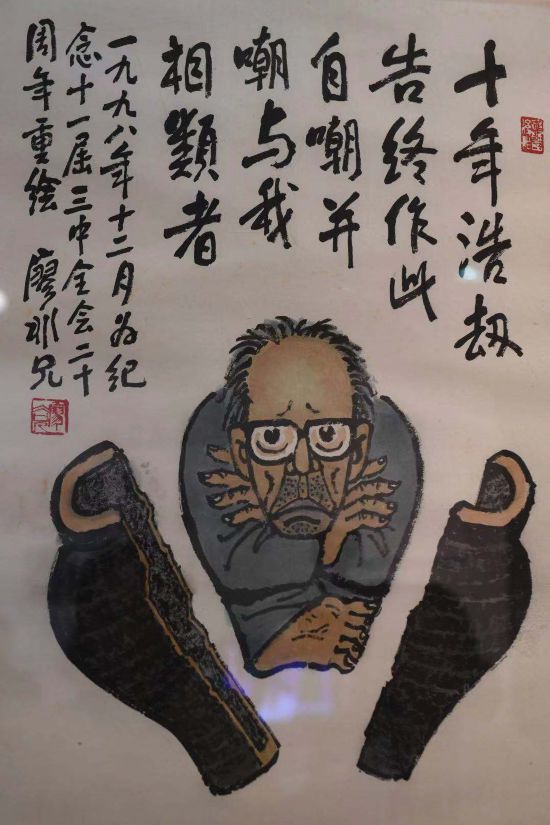 十年浩劫
告终作此
自嘲并
嘲与我
相類者
一九九八年十二月为纪
念十一届三中全会二十
周年重绘 廖冰兄